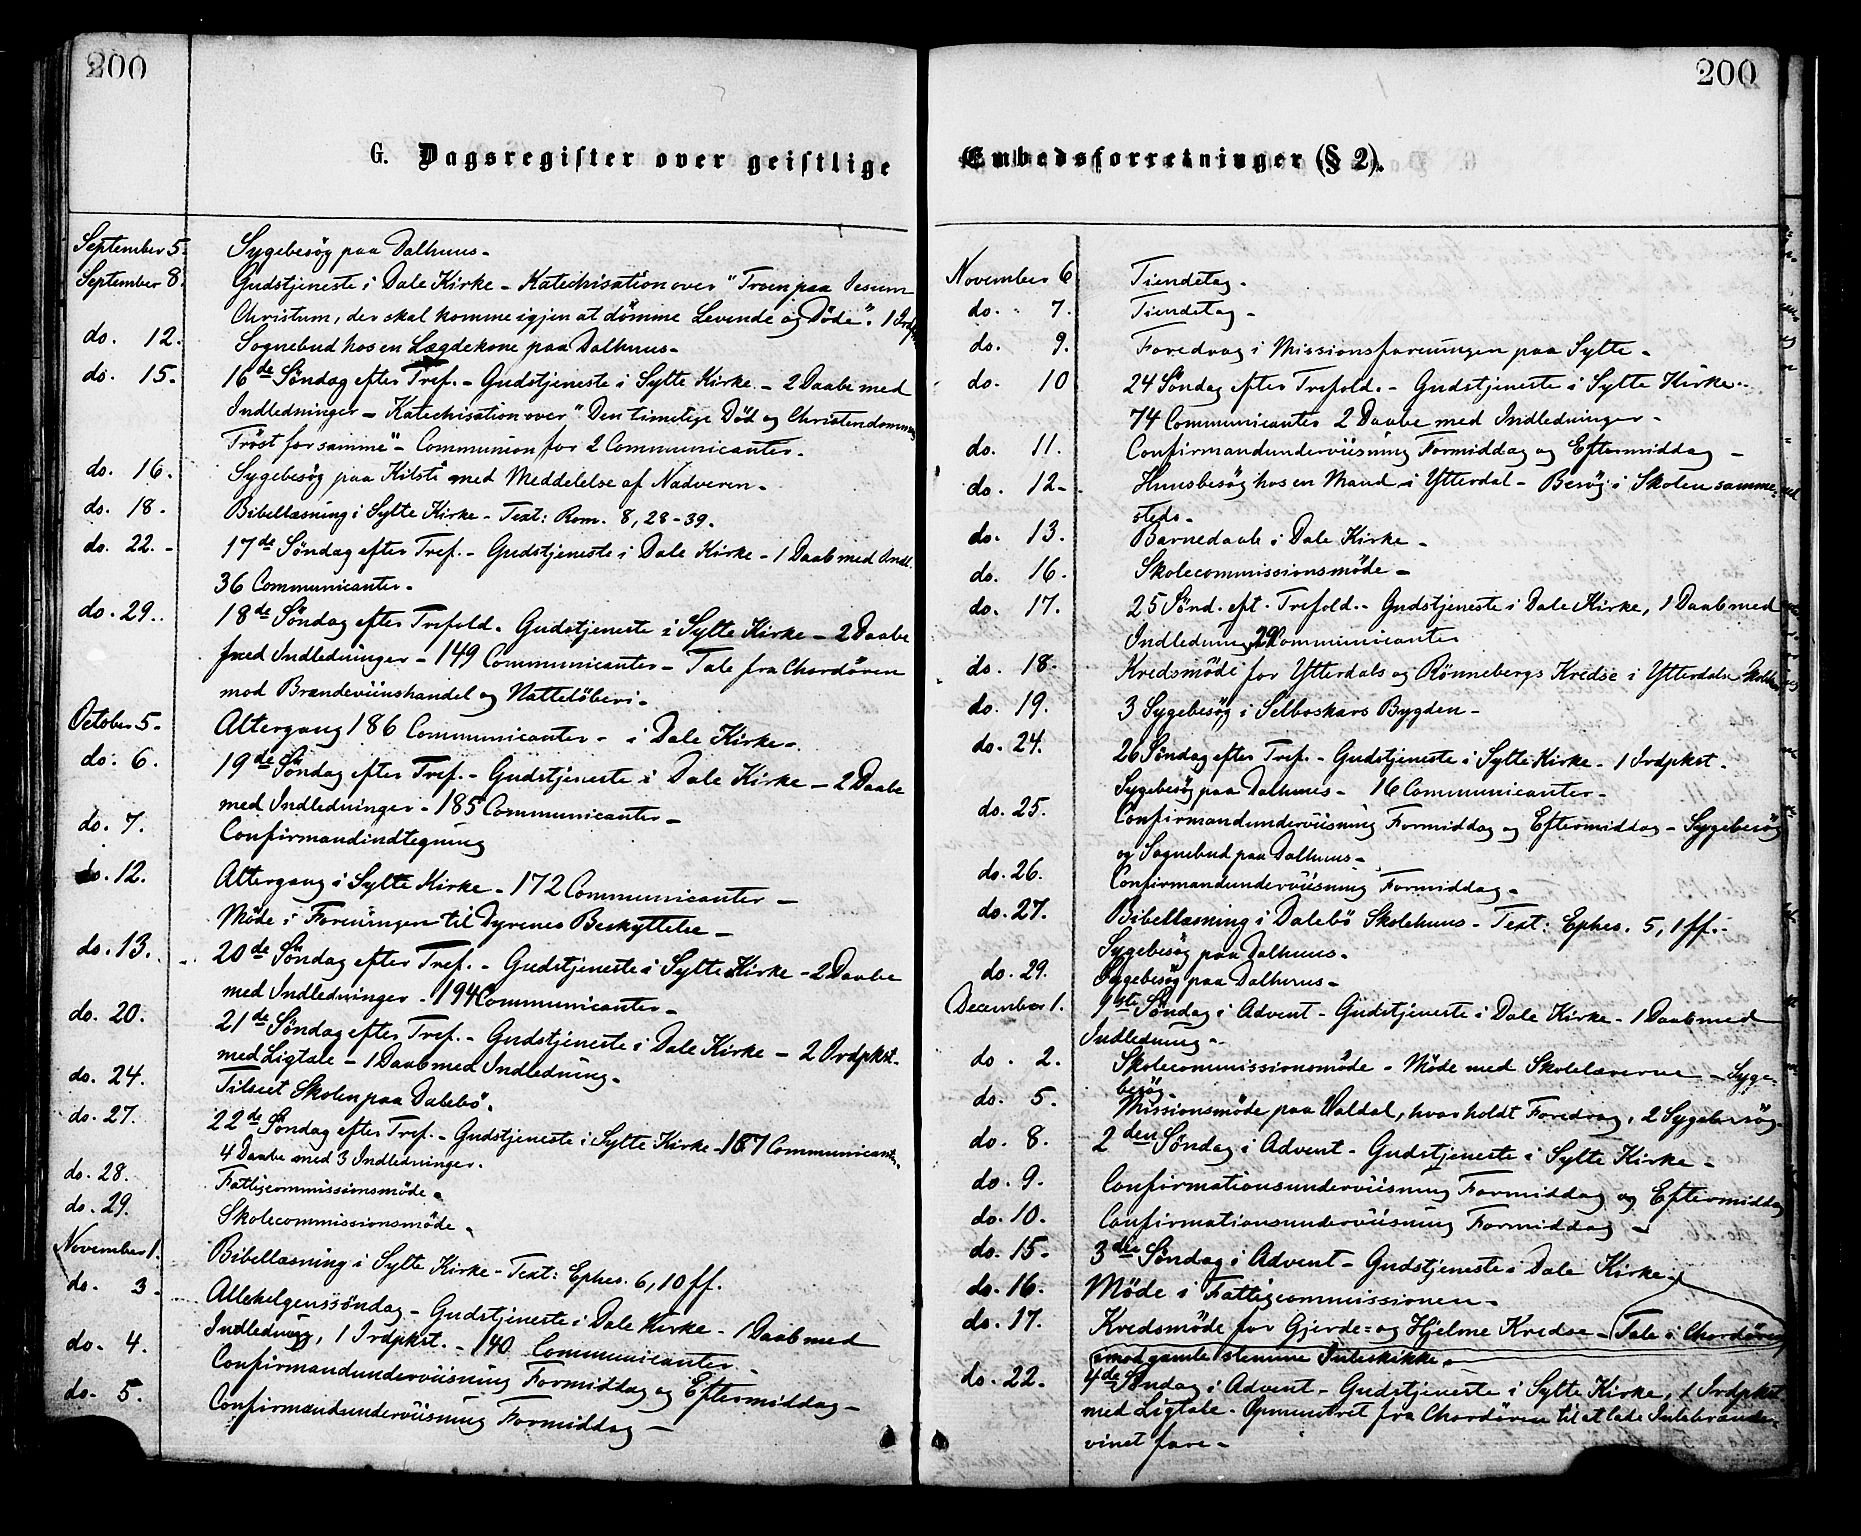 200
G. Dagsregister over geistlige
September 5. Sygebesög paa Dalhuus.
September 8. Gudstjeneste i Dale Kirke - Katechisation over "Troen paa Jesum
Christum, der skal komme igjen at dömme Levende og Döde". 1 Irdpk
do. 12. Sognebud hos en Lægdekone paa Dalhuus.
do. 15. 16de Söndag efter Tref. - Gudstjeneste i Sylte Kirke. - 2 Daabe med
Indledninger - Katechisation over "Den timelige Död og Christendommens
Tröst for samme" - Communion for 2 Communicanter.
do. 16. Sygebesög paa Kilsti med Meddelelse af Nadveren.
do. 18. Bibellæsning i Sylte Kirke - Text: Rom. 8, 28-39.
do. 22. 17de Söndag efter Tref. - Gudstjeneste i Dale Kirke - 1 Daab med Indl.
36 Communicanter.
do. 29. 18de Söndag efter Trefold. Gudstjeneste i Sylte Kirke - 2 Daabe
med Indledninger - 149 Communicanter - Tale fra Chordören
mod Brændeviinshandel og Natteløberi.
October 5. Altergang 186 Communicanter - i Dale Kirke.
do. 6. 19de Söndag efter Tref. - Gudstjeneste i Dale Kirke - 2 Daabe
med Indledninger - 185 Communicanter -
do. 7. Confirmandindtegning
do. 12. Altergang i Sylte Kirke - 172 Communicanter -
Möde i Foreningen til Dyrenes Beskyttelse -
do. 13. 20de Söndag efter Tref. - Gudstjeneste i Sylte Kirke - 2 Daabe
med Indledninger - 194 Communicanter -
do. 20. 21de Söndag efter Tref. - Gudstjeneste i Dale Kirke - 2 Irdpkst.
med Ligtale - 1 Daab med Indledning.
do. 24. Tilseet Skolen paa Dalebö.
do. 27. 22de Söndag efter Tref. - Gudstjeneste i Sylte Kirke - 187 Communicanter
4 Daabe med 3 Indledninger.
do. 28. Fattigcommissionsmöde.
do. 29. Skolecommissionsmöde.
November 1. Bibellæsning i Sylte Kirke - Text: Ephes. 6, 10 ff.
do. 3. Allehelgenssöndag - Gudstjeneste i Dale Kirke - 1 Daab med
Indledning, 1 Irdpkst. - 140 Communicanter -
do. 4. Confirmandunderviisning Formiddag og Eftermiddag -
do. 5. Confirmandunderviisning Formiddag -
200
Embedsforretninger (§ 2).
November 6 Tiendetag.
do. 7. Tiendetag -
do. 9. Foredrag i Missionsforeningen paa Sylte -
do. 10 24 Söndag efter Trefold. - Gudstjeneste i Sylte Kirke -
74 Communicanter 2 Daabe med Indledninger -
do. 11. Confirmandunderviisning Formiddag og Eftermiddag -
do. 12. Huusbesög hos en Mand i Ytterdal - Besög i Skolen samme-
steds.
do. 13. Barnedaab i Dale Kirke -
do. 16. Skolecommissionsmöde -
do. 17. 25 Sönd. eft. Trefold. - Gudstjeneste i Dale Kirke, 1 Daab med
Indledning, 29 Communicanter
do. 18. Kredsmöde for Ytterdals og Rönnebergs Kredse i Ytterdals Skole
do. 19. 3 Sygebesög i Selboskars Bygden -
do. 24. 26 Söndag efter Tref. - Gudstjeneste i Sylte Kirke - 1 Irdpkst.
Sygebesög paa Dalhuus - 16 Communicanter -
do. 25. Confirmandunderviisning Formiddag og Eftermiddag - Sygebesög
og Sognebud paa Dalhuus -
do. 26. Confirmandunderviisning Formiddag -
do. 27. Bibellæsning i Dalebö Skolehuus - Text: Ephes. 5, 1 ff. -
Sygebesög paa Dalhuus -
do. 29. Sygebesög paa Dalhuus -
December 1. 1ste Söndag i Advent - Gudstjeneste i Dale Kirke - 1 Daab med
Indledning -
do. 2. Skolecommissionsmöde - Möde med Skolelærerne - Syge-
besög
do. 5. Missionsmöde paa Valdal, hvor holdt Foredrag, 2 Sygebesög
do. 8. 2den Söndag i Advent - Gudstjeneste i Sylte Kirke -
do. 9. Confirmationsunderviisning Formiddag og Eftermiddag
do. 10. Confirmationsunderviisning Formiddag -
do. 15. 3die Söndag i Advent - Gudstjeneste i Dale Kirke
do. 16. Möde i Fattigcommissionen -
do. 17. Kredsmöde for Gjerde= og Hjelme Kredse - Tale i Chordören
mod gamle slemme Juleskikke.
do. 22. 4de Söndag i Advent - Gudstjeneste i Sylte Kirke, 1 Irdpkst
med Ligtale - Opmuntret fra Chordören til at lade Julebrænde-
vinet fare -